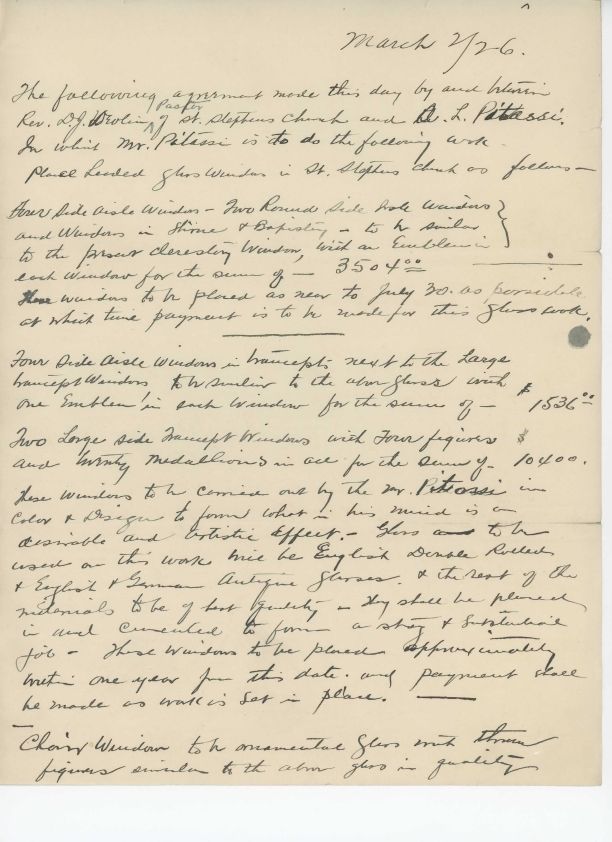 March 2/26.
The following agrement made this day by and between
Pastor
Rev. D.J. Devling of St. Stephens Church and A. L. Pitassi.
In which Mr. Pitassi is to do the following work.
Place Leaded glass Windows in St. Stephens Church as follows —
Four Side Aisle Windows - Two Round Side Aisle Windows
and Windows in Shrine & Baptistry - to be similar
to the present clerestory Window, with an Emblem in
each Window for the sum of — 3504.00
These windows to be placed as near to July 30. as possible
at which time payment is to be made for this glass work.
Four Side Aisle Windows in transepts next to the Large
transept Windows to be similar to the above glass with
one Emblem in each Window for the sum of — $1536.00
Two Large side Transept Windows with Four figures
and twenty Medallions in all for the sum of $10400.
These Windows to be carried out by the Mr. Pitassi in
Color & Design to form what in his mind is a
desirable and artistic Effect. — Glass to be
used on this work will be English Double Rolled
& English & German Antique glasses. & the rest of the
materials to be of best quality — they shall be placed
in and cemented to form a strong & Substantial
job — These Windows to be placed approximately
within one year from this date. and payment shall
be made as work is Set in place. —
Choir Window to be ornamental Glass with three
figures similar to the above glass in quality